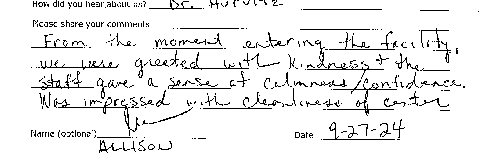 How did you hear about us? Dr. Hurwitz
Please share your comments
From the moment entering the facility,
we were greeted with kindness & the
staff gave a sense of calmness/confidence.
Was impressed with cleanliness of center
Name (optional) ALLISON Date 9-27-24